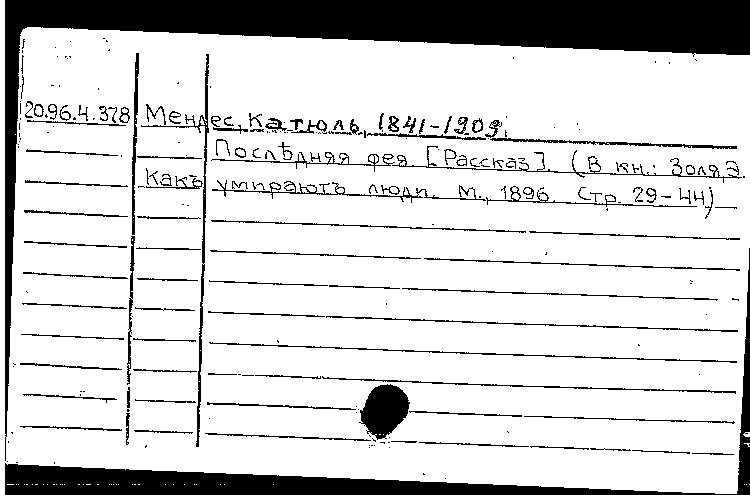 20.96.4.378 Мендес, Катюль, 1841-1909.
Послѣдняя фея [Рассказ]. (В кн.: Золя, Э.
Какъ умираютъ люди. М., 1896. Стр. 29-44)